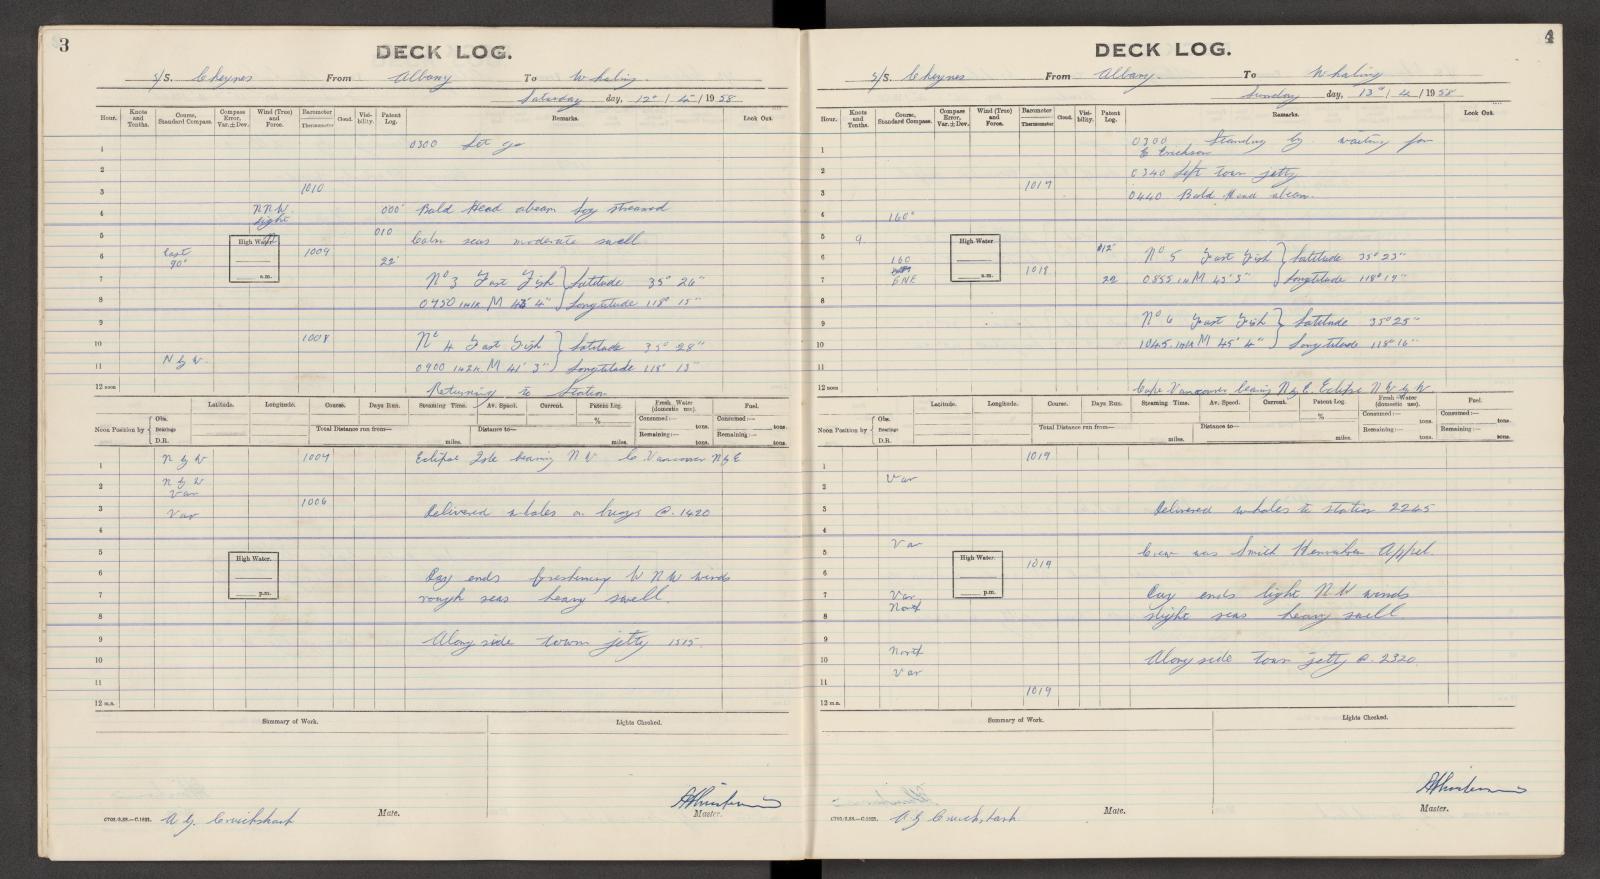 3
DECK LOG.
S/S. Cheynes From Albany To Whaling.
Saturday day, 12th / 4 / 1958
Hour. Knots and Tenths. Course, Standard Compass. Compass Error, Var. ± Dev. Wind (True) and Force. Barometer Thermometer Cloud. Visibility. Patent Log. Remarks. Look Out.
1 0300 Let go
2
3 1010
4 NNW light 000' Bald Head abeam Log streamed
5 010 Calm seas moderate swell
High Water. a.m.
6 East 90° 1009 22'
7 No 3 Fast Fish } Latitude 35° 26"
8 0750 M 4" } Longtitude 118° 15"
9
10 1008 No 4 Fast Fish } Latitude 35° 28"
11 N by W. 0900 M 41' 3" } Longtitude 118° 13"
12 noon Returning to Station
Latitude. Longitude. Course. Days Run. Steaming Time. Av. Speed. Current. Patent Log. Fresh Water (domestic use). Fuel.
Noon Position by { Obs. Bearings D.R.
Total Distance run from— miles. Distance to— miles. % Consumed:— tons. Remaining:— tons. Consumed:— tons. Remaining:— tons.
1 N by W 1007 Eclipse Isle bearing N W C. Vancouver N by E
2 N by W Var
3 Var 1006 Delivered whales on buoys @ 1420
4
5
High Water. p.m.
6 Day ends freshening W NW winds
7 rough seas heavy swell.
8
9 Along side town jetty 1515.
10
11
12 m.n.
Summary of Work. Lights Checked.
C702/3.58.—C.1021. A G. Cruickshank Mate. Master.
4
DECK LOG.
S/S. Cheynes From Albany. To Whaling
Sunday day, 13th / 4 / 1958
Hour. Knots and Tenths. Course, Standard Compass. Compass Error, Var. ± Dev. Wind (True) and Force. Barometer Thermometer Cloud. Visibility. Patent Log. Remarks. Look Out.
1 0300 Standing by waiting for
C Erickson
2 0340 Left town jetty
3 1017 0440 Bald Head abeam.
4 160°
5 9.
High Water. a.m.
6 160 012' No 5 Fast Fish } Latitude 35° 23"
7 ENE 1018 22 0855 M 43' 3" } Longtitude 118° 17"
8
9 No 6 Fast Fish } Latitude 35° 25"
10 1045 M 45' 4" } Longtitude 118° 16"
11
12 noon Cape Vancouver bearing N by E. Eclipse NW by W
Latitude. Longitude. Course. Days Run. Steaming Time. Av. Speed. Current. Patent Log. Fresh Water (domestic use). Fuel.
Noon Position by { Obs. Bearings D.R.
Total Distance run from— miles. Distance to— miles. % Consumed:— tons. Remaining:— tons. Consumed:— tons. Remaining:— tons.
1 1019
2 Var
3 Delivered whales to station 2245
4
5 Var Crew was Smith
High Water. p.m.
6 1019
7 Var North Day ends light NW winds
8 slight seas heavy swell.
9
10 North Along side town jetty @ 2320.
11 Var
12 m.n. 1019
Summary of Work. Lights Checked.
C702/3.58.—C.1021. A G Cruickshank Mate. Master.